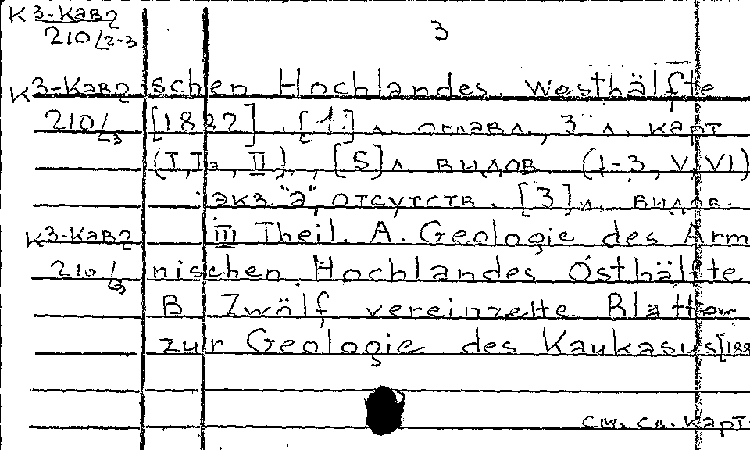 К3-Кав2
210/2-3
3
К3-Кав2 schen Hochlandes. Westhälfte
210/3 [1882]. [1] л. оглавл., 3 л. карт
(I, I₂, II), [5] л видов (1-3, V, VI)
экз. "2" отсутств. [3] л. видов.
К3-Кав2 III Theil. A. Geologie des Arm
210/3 nischen Hochlandes Osthälfte
B Zwölf vereinzelte Blätter
zur Geologie des Kaukasus [188
см. сл. карт